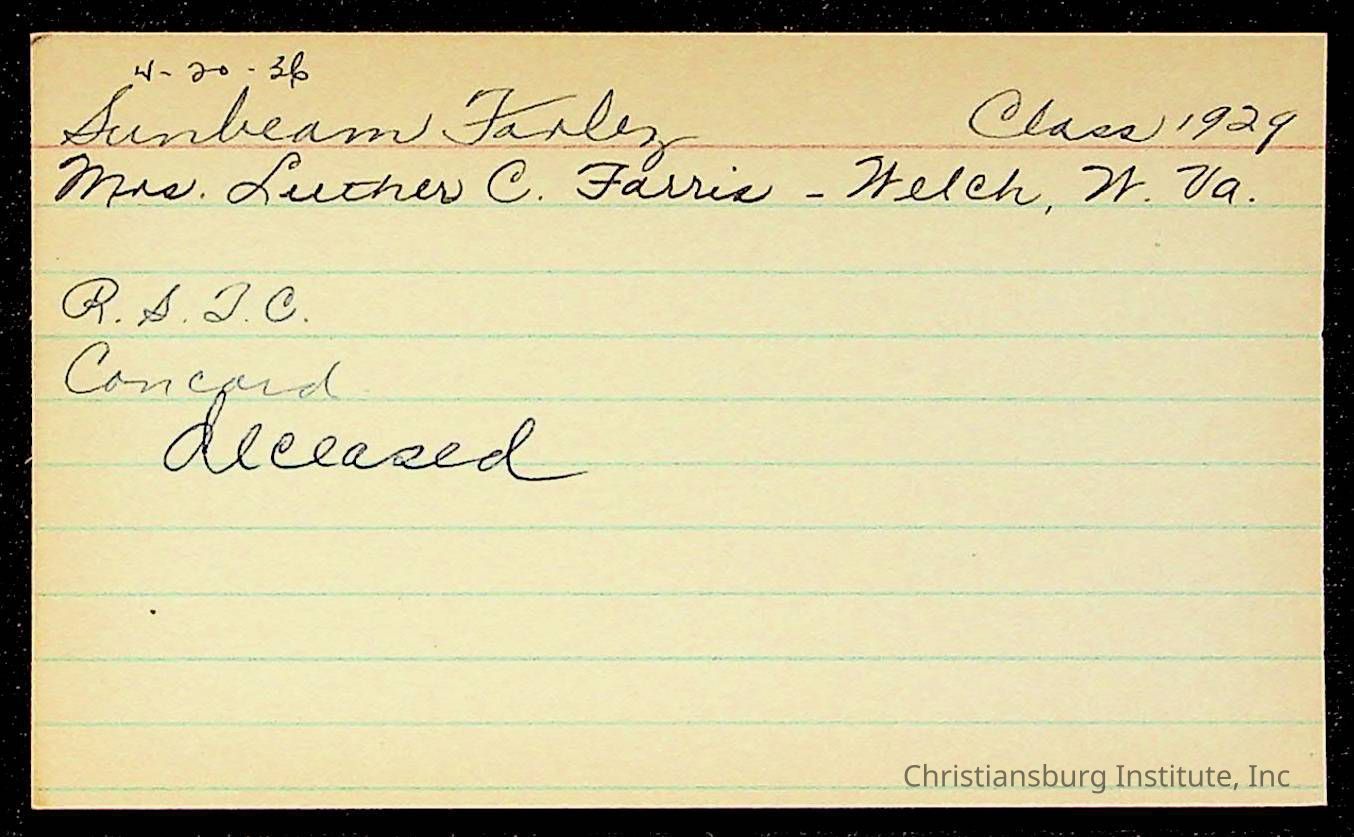 4-20-36
Sunbeam Farley Class 1929
Mrs. Luther C. Farris - Welch, W. Va.
R. S. T. C.
Concord
deceased
Christiansburg Institute, Inc